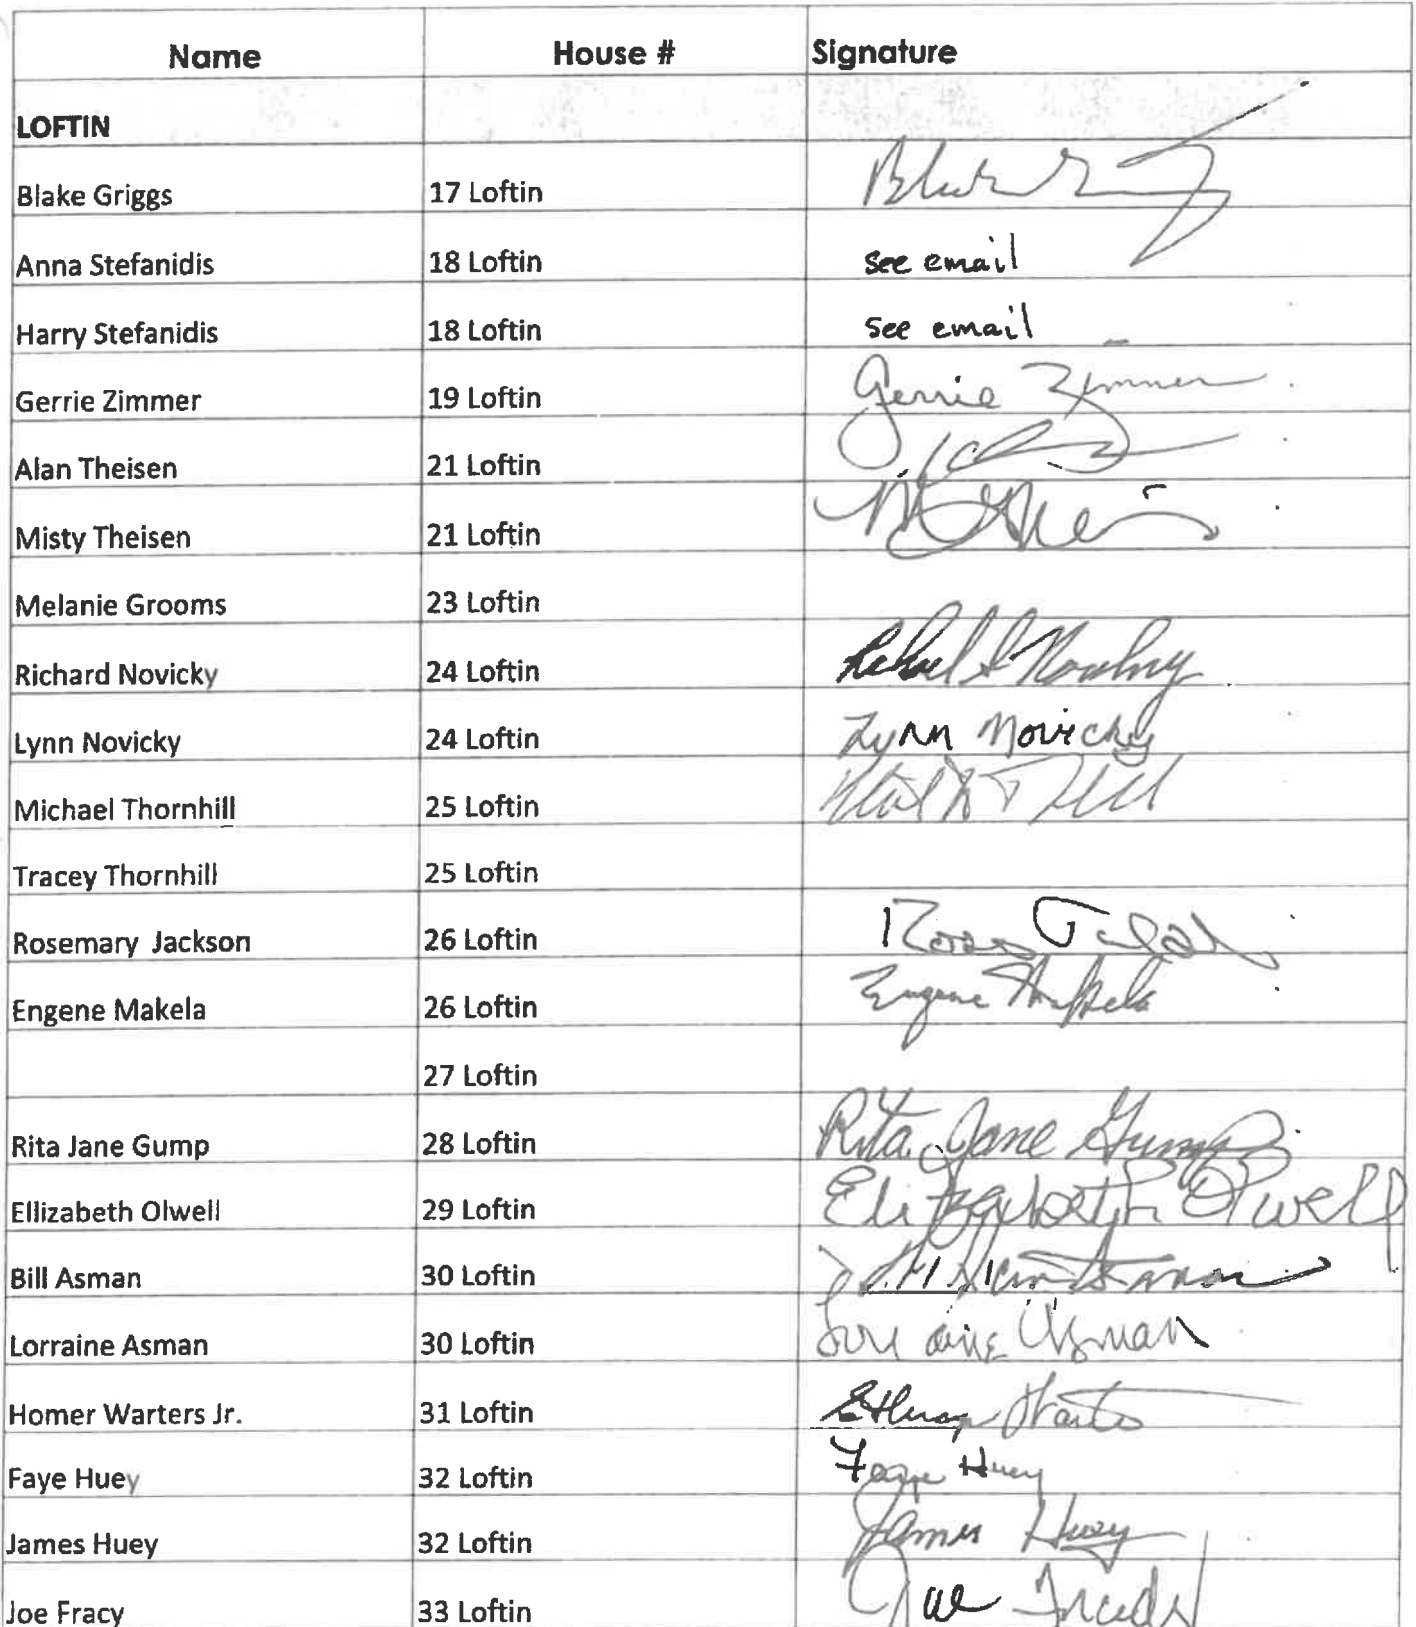 Name House # Signature
LOFTIN
Blake Griggs 17 Loftin
Anna Stefanidis 18 Loftin see email
Harry Stefanidis 18 Loftin see email
Gerrie Zimmer 19 Loftin Gerrie Zimmer
Alan Theisen 21 Loftin
Misty Theisen 21 Loftin
Melanie Grooms 23 Loftin
Richard Novicky 24 Loftin
Lynn Novicky 24 Loftin Lynn Novicky
Michael Thornhill 25 Loftin
Tracey Thornhill 25 Loftin
Rosemary Jackson 26 Loftin
Engene Makela 26 Loftin Eugene Makela
27 Loftin
Rita Jane Gump 28 Loftin Rita Jane Gump
Ellizabeth Olwell 29 Loftin Elizabeth Olwell
Bill Asman 30 Loftin
Lorraine Asman 30 Loftin Lorraine Asman
Homer Warters Jr. 31 Loftin
Faye Huey 32 Loftin Faye Huey
James Huey 32 Loftin James Huey
Joe Fracy 33 Loftin Joe